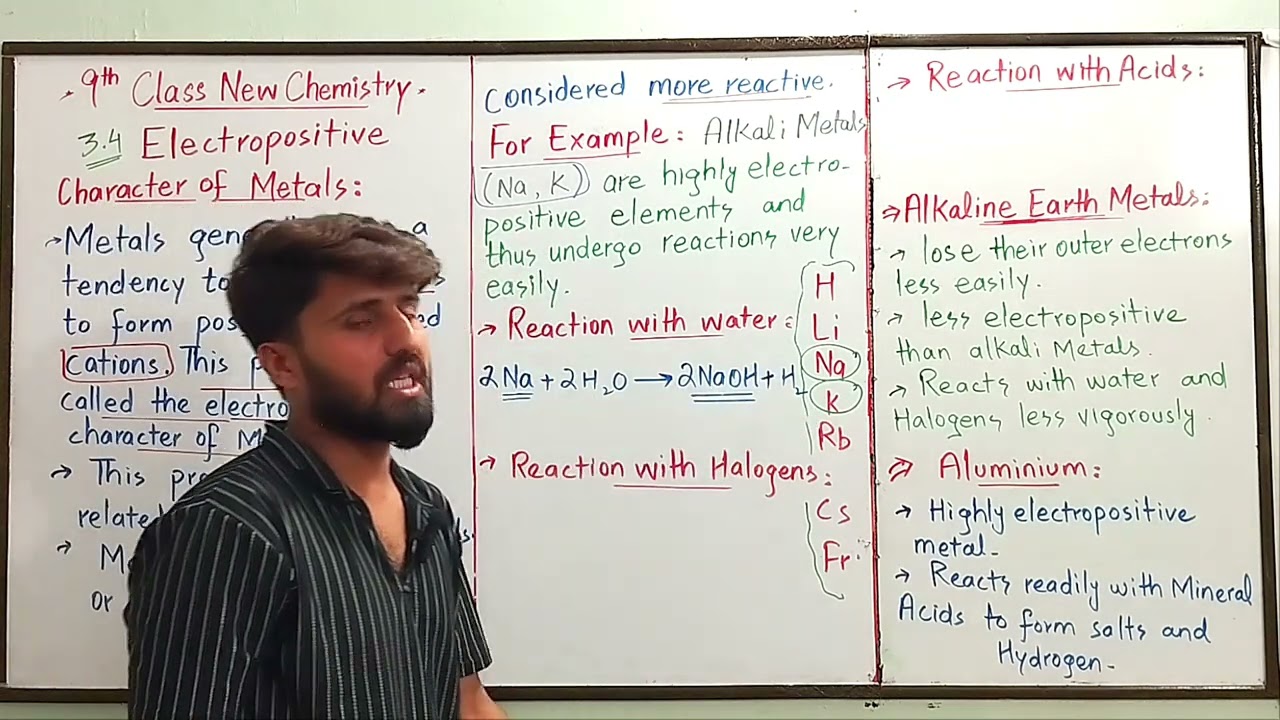 9th Class New Chemistry.
3.4 Electropositive
Character of Metals:
→ Metals a
tendency to
to form pos ed
Cations. This
called the electro
character of M
→ This
related
→
or
Considered more reactive.
For Example: Alkali Metals
(Na, K) are highly electro-
positive elements and
thus undergo reactions very
easily.
→ Reaction with water:
2Na + 2H₂O → 2NaOH + H₂
→ Reaction with Halogens:
H
Li
Na
K
Rb
Cs
Fr
→ Reaction with Acids:
⇒ Alkaline Earth Metals:
→ lose their outer electrons
less easily.
→ less electropositive
than alkali Metals.
→ Reacts with water and
Halogens less vigorously.
⇒ Aluminium:
→ Highly electropositive
metal-
→ Reacts readily with Mineral
Acids to form salts and
Hydrogen-